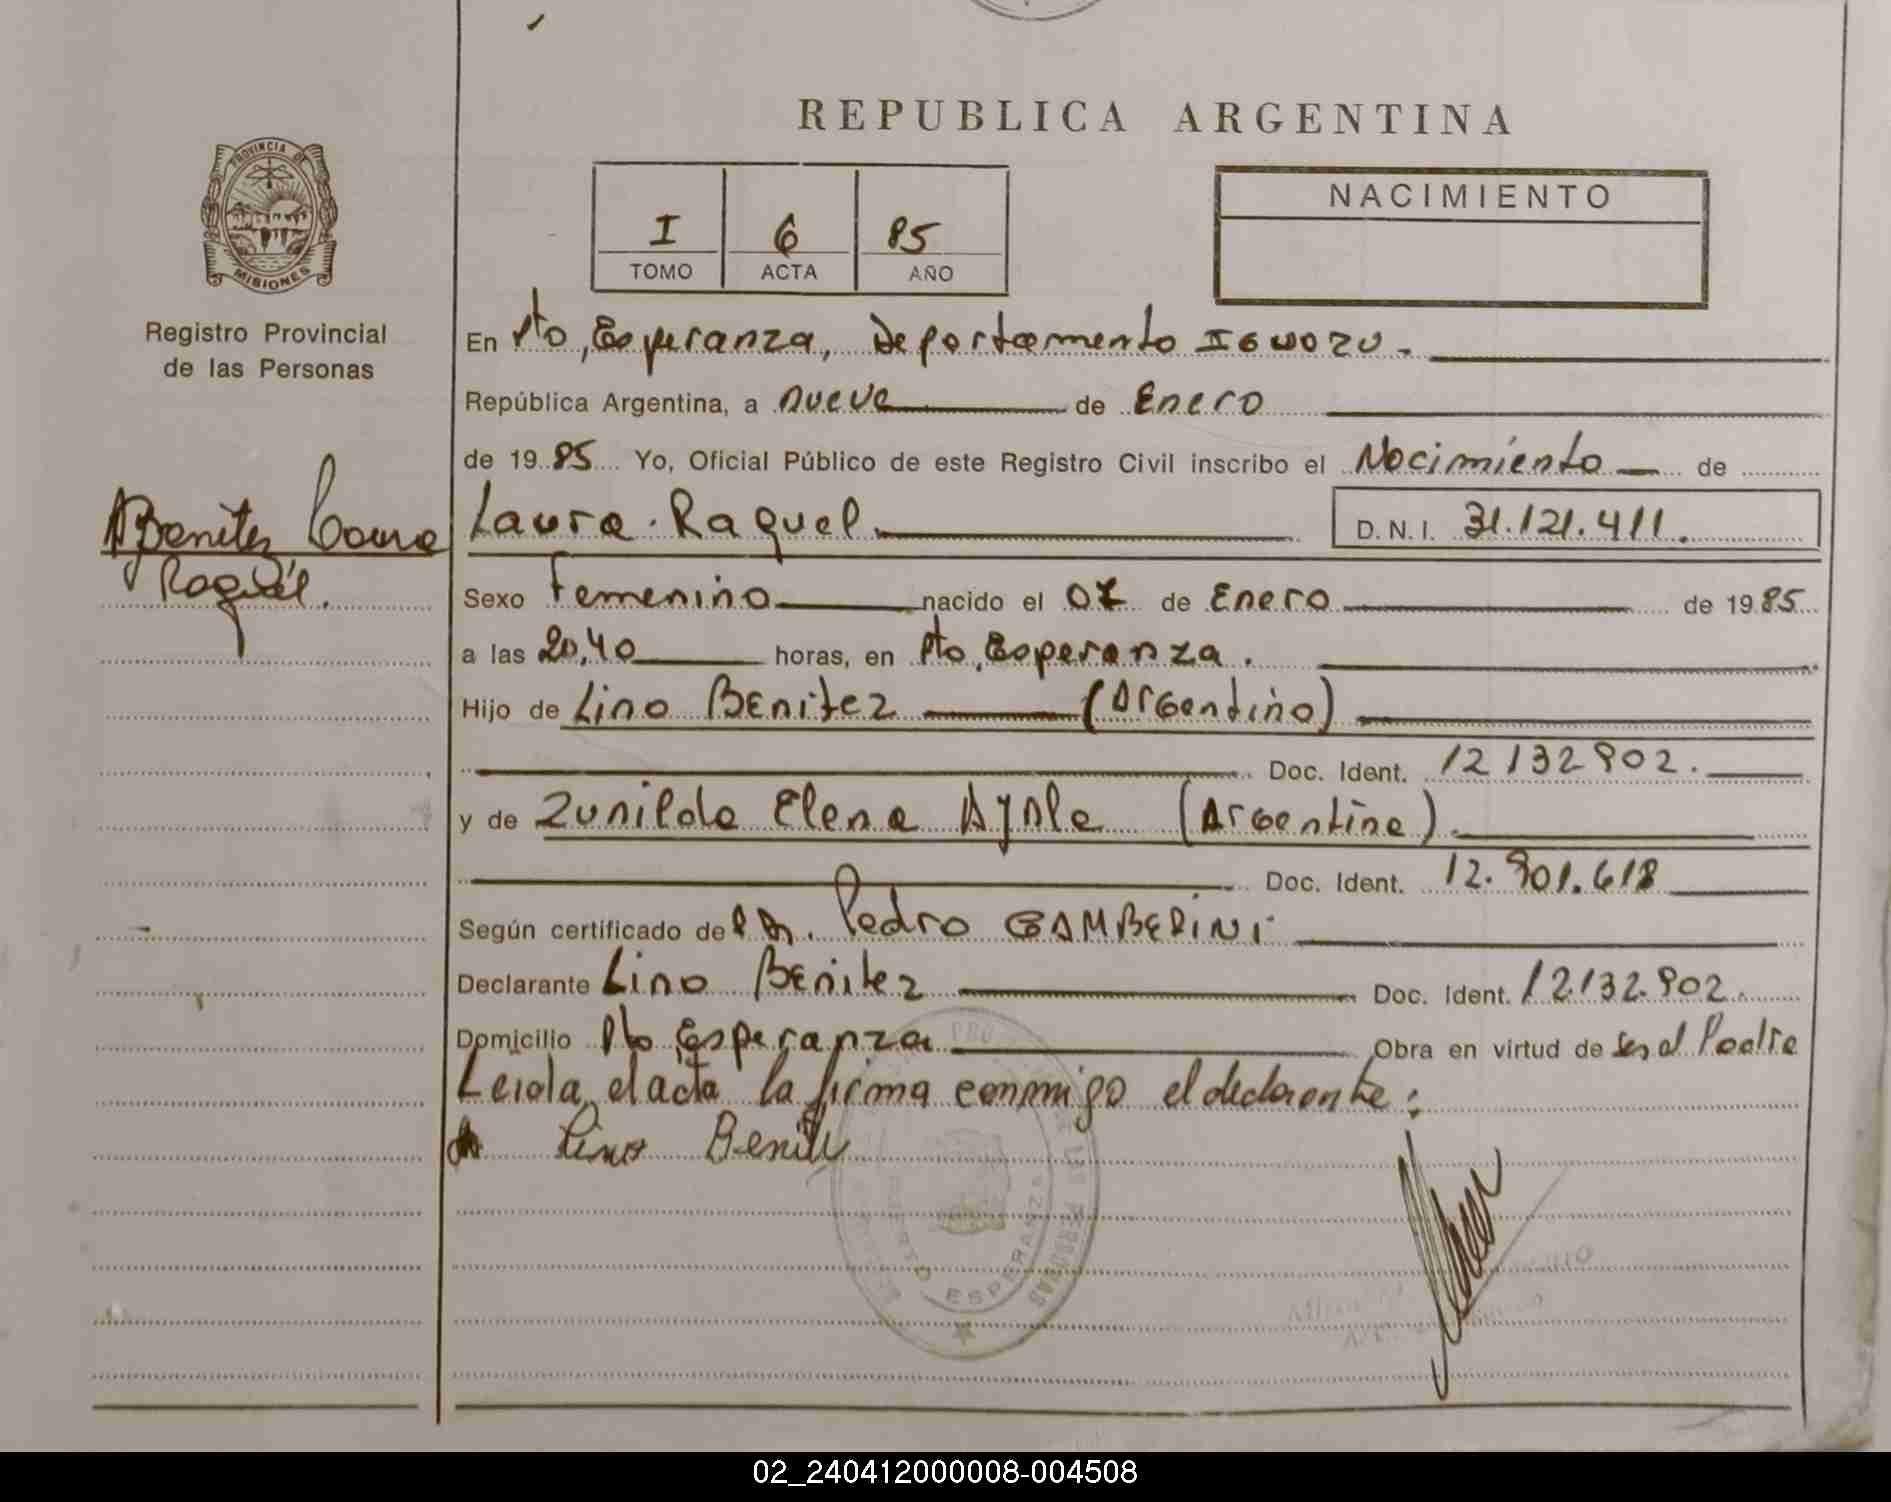 REPUBLICA ARGENTINA
PROVINCIA DE
MISIONES
Registro Provincial
de las Personas
I 6 85
TOMO ACTA AÑO
NACIMIENTO
En Pto, Esperanza, Departamento IGUAZU.
República Argentina, a nueve de Enero
de 1985 Yo, Oficial Público de este Registro Civil inscribo el Nacimiento de
Benitez Laura
Raquél.
Laura Raquel D.N.I. 31.121.411.
Sexo Femenino nacido el 07 de Enero de 1985
a las 20,40 horas, en Pto, Esperanza.
Hijo de Lino BEnitez (Argentino)
Doc. Ident. 12132902.
y de Zunilda Elena Ayala (Argentina)
Doc. Ident. 12.901.618
Según certificado de Pedro GAMBERINI
Declarante Lino BEnitez Doc. Ident. 12.132.902.
Domicilio Pto Esperanza Obra en virtud de ser el Padre
Leida el acta la firma conmigo el declarante:
Lino Benitez
PUERTO ESPERANZA
DE LAS PERSONAS
02_240412000008-004508